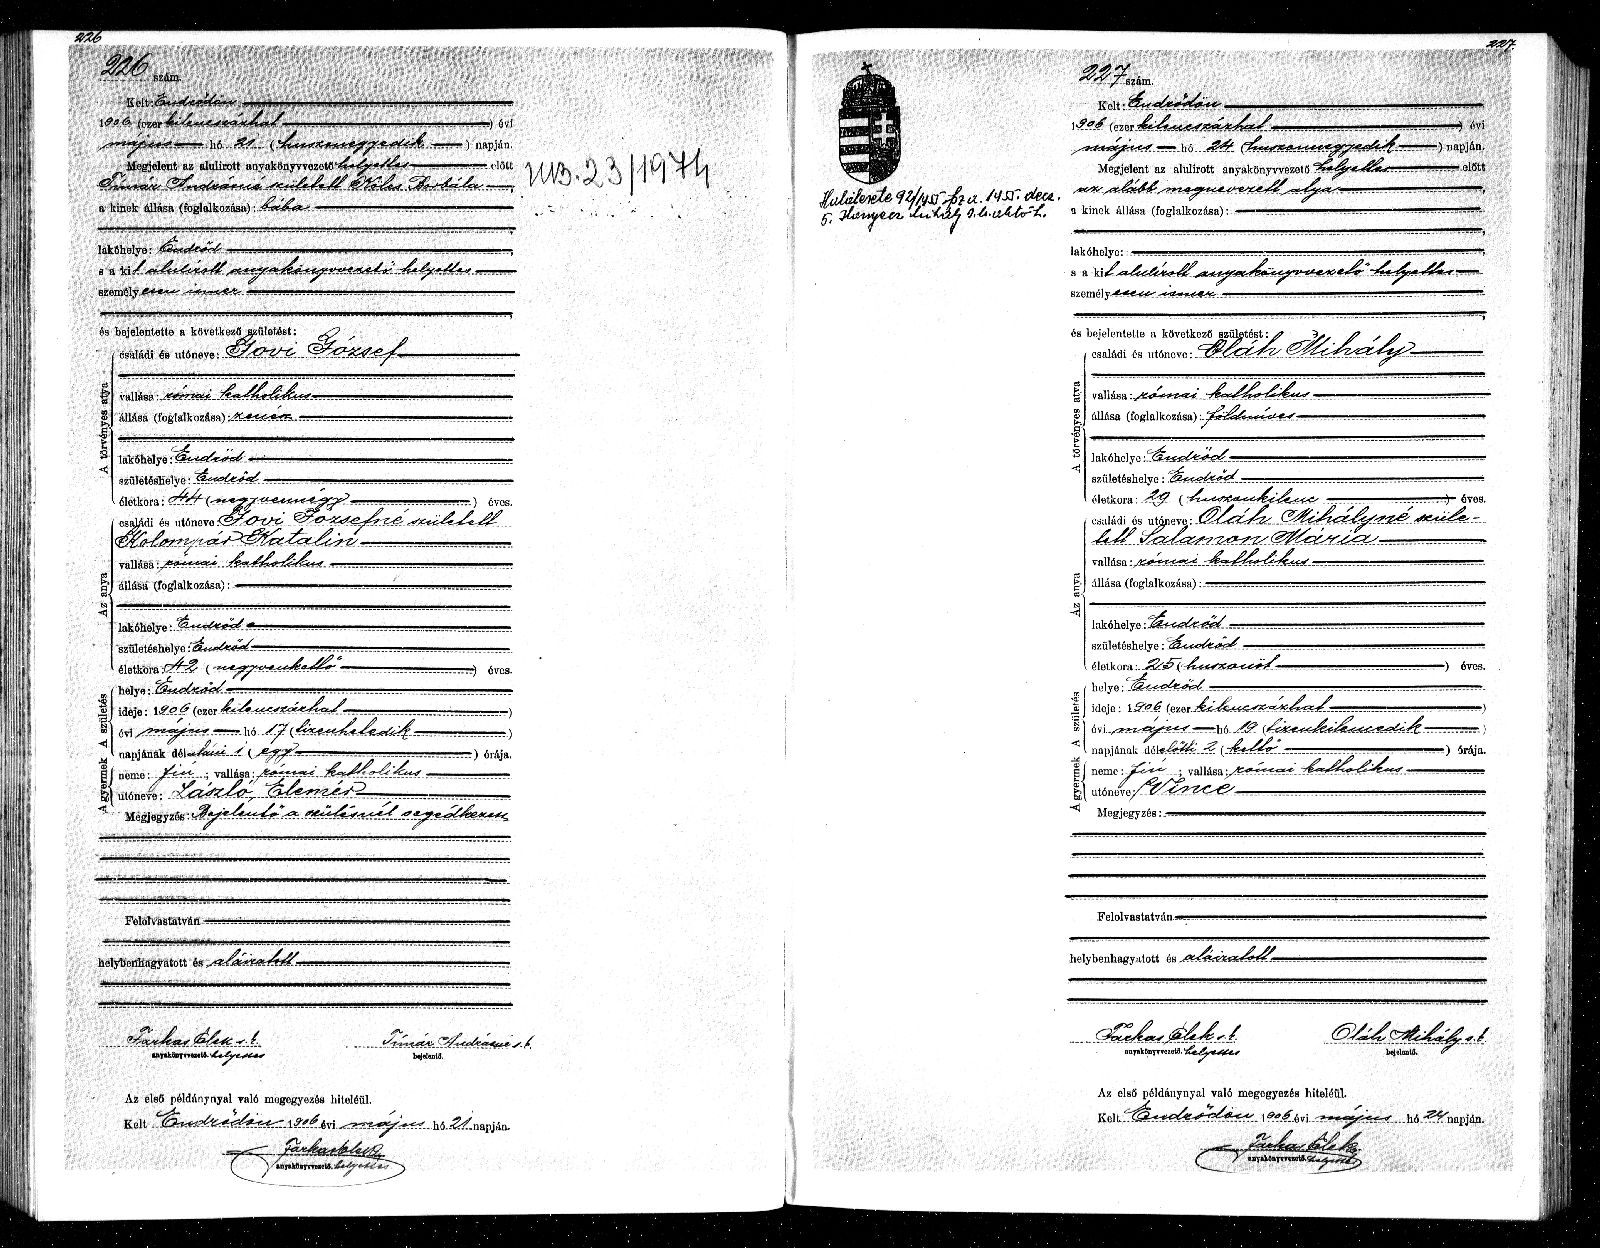 226
226 szám.
Kelt: Endrődön
1906 (ezer kilencszázhat) évi
május hó 21 (huszonegyedik) napján.
Megjelent az alulirott anyakönyvvezető helyettes előtt
Tímár Andrásné született Kólos Borbála
a kinek állása (foglalkozása): bába
lakóhelye: Endrőd
s a kit alulírott anyakönyvvezető helyettes
személyesen ismer
és bejelentette a következő születést:
A törvényes atya
családi és utóneve: Govi József
vallása: római katholikus
állása (foglalkozása): zenész
lakóhelye: Endrőd
születéshelye: Endrőd
életkora: 44 (negyvennégy) éves.
Az anya
családi és utóneve: Govi Józsefné született
Kolompár Katalin
vallása: római katholikus
állása (foglalkozása):
lakóhelye: Endrőd
születéshelye: Endrőd
életkora: 42 (negyvenkettő) éves.
A gyermek A születés
helye: Endrőd
ideje: 1906 (ezer kilencszázhat)
évi május hó 17 (tizenhetedik)
napjának délutáni 1 (egy) órája.
neme: fiú; vallása: római katholikus
utóneve: László, Elemér
Megjegyzés: Bejelentő a szülésnél segédkezett
Felolvastatván
helybenhagyatott és aláíratott
Farkas Elek s.k. Tímár Andrásné s.k.
anyakönyvvezető. helyettes bejelentő.
Az első példánynyal való megegyezés hiteléül.
Kelt Endrődön 1906 évi május hó 21 napján.
Farkas Elek
anyakönyvvezető. helyettes
23/1974
227
5. decz.
227 szám.
Kelt: Endrődön
1906 (ezer kilencszázhat) évi
május hó 24 (huszonnegyedik) napján.
Megjelent az alulirott anyakönyvvezető helyettes előtt
az alább megnevezett atya
a kinek állása (foglalkozása):
lakóhelye:
s a kit alulírott anyakönyvvezető helyettes
személyesen ismer
és bejelentette a következő születést:
A törvényes atya
családi és utóneve: Oláh Mihály
vallása: római katholikus
állása (foglalkozása): földmíves
lakóhelye: Endrőd
születéshelye: Endrőd
életkora: 29 (huszonkilenc) éves.
Az anya
családi és utóneve: Oláh Mihályné szüle-
tett Salamon Mária
vallása: római katholikus
állása (foglalkozása):
lakóhelye: Endrőd
születéshelye: Endrőd
életkora: 25 (huszonöt) éves.
A gyermek A születés
helye: Endrőd
ideje: 1906 (ezer kilencszázhat)
évi május hó 19 (tizenkilencedik)
napjának délelőtti 2 (kettő) órája.
neme: fiú; vallása: római katholikus
utóneve: Vince
Megjegyzés:
Felolvastatván
helybenhagyatott és aláíratott
Farkas Elek s.k. Oláh Mihály s.k.
anyakönyvvezető. helyettes bejelentő.
Az első példánynyal való megegyezés hiteléül.
Kelt Endrődön 1906 évi május hó 24 napján.
Farkas Elek
anyakönyvvezető. helyettes